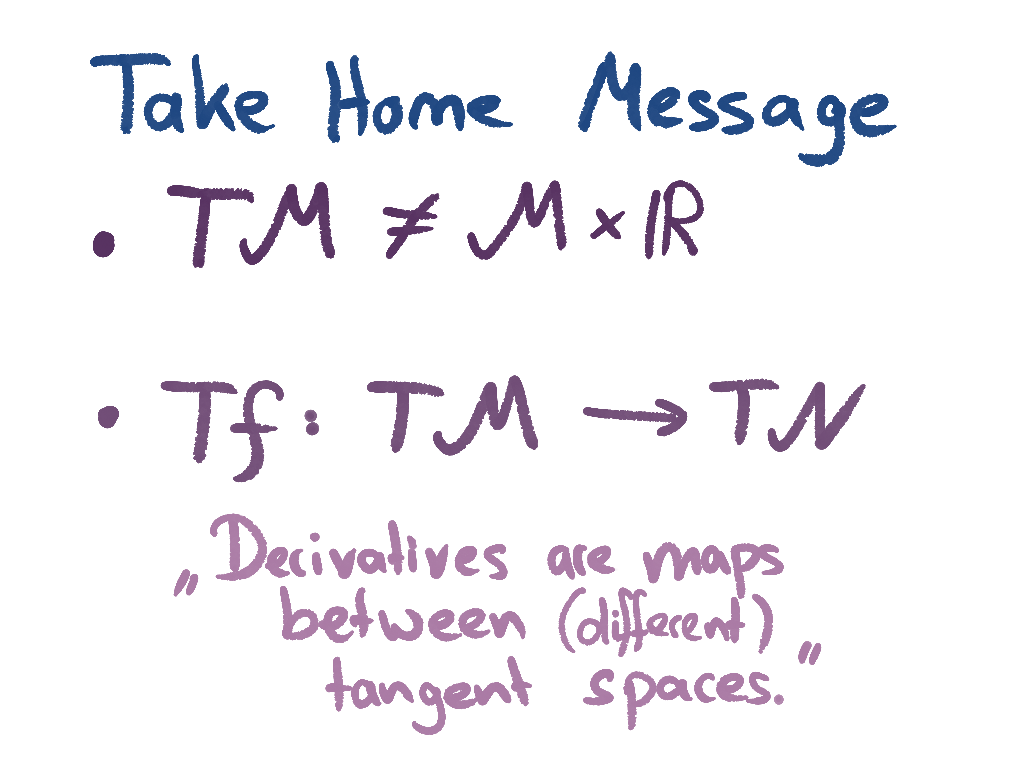 Take Home Message
• TM ≠ M × ℝ
• Tf : TM → TN
„Derivatives are maps
between (different)
tangent spaces."